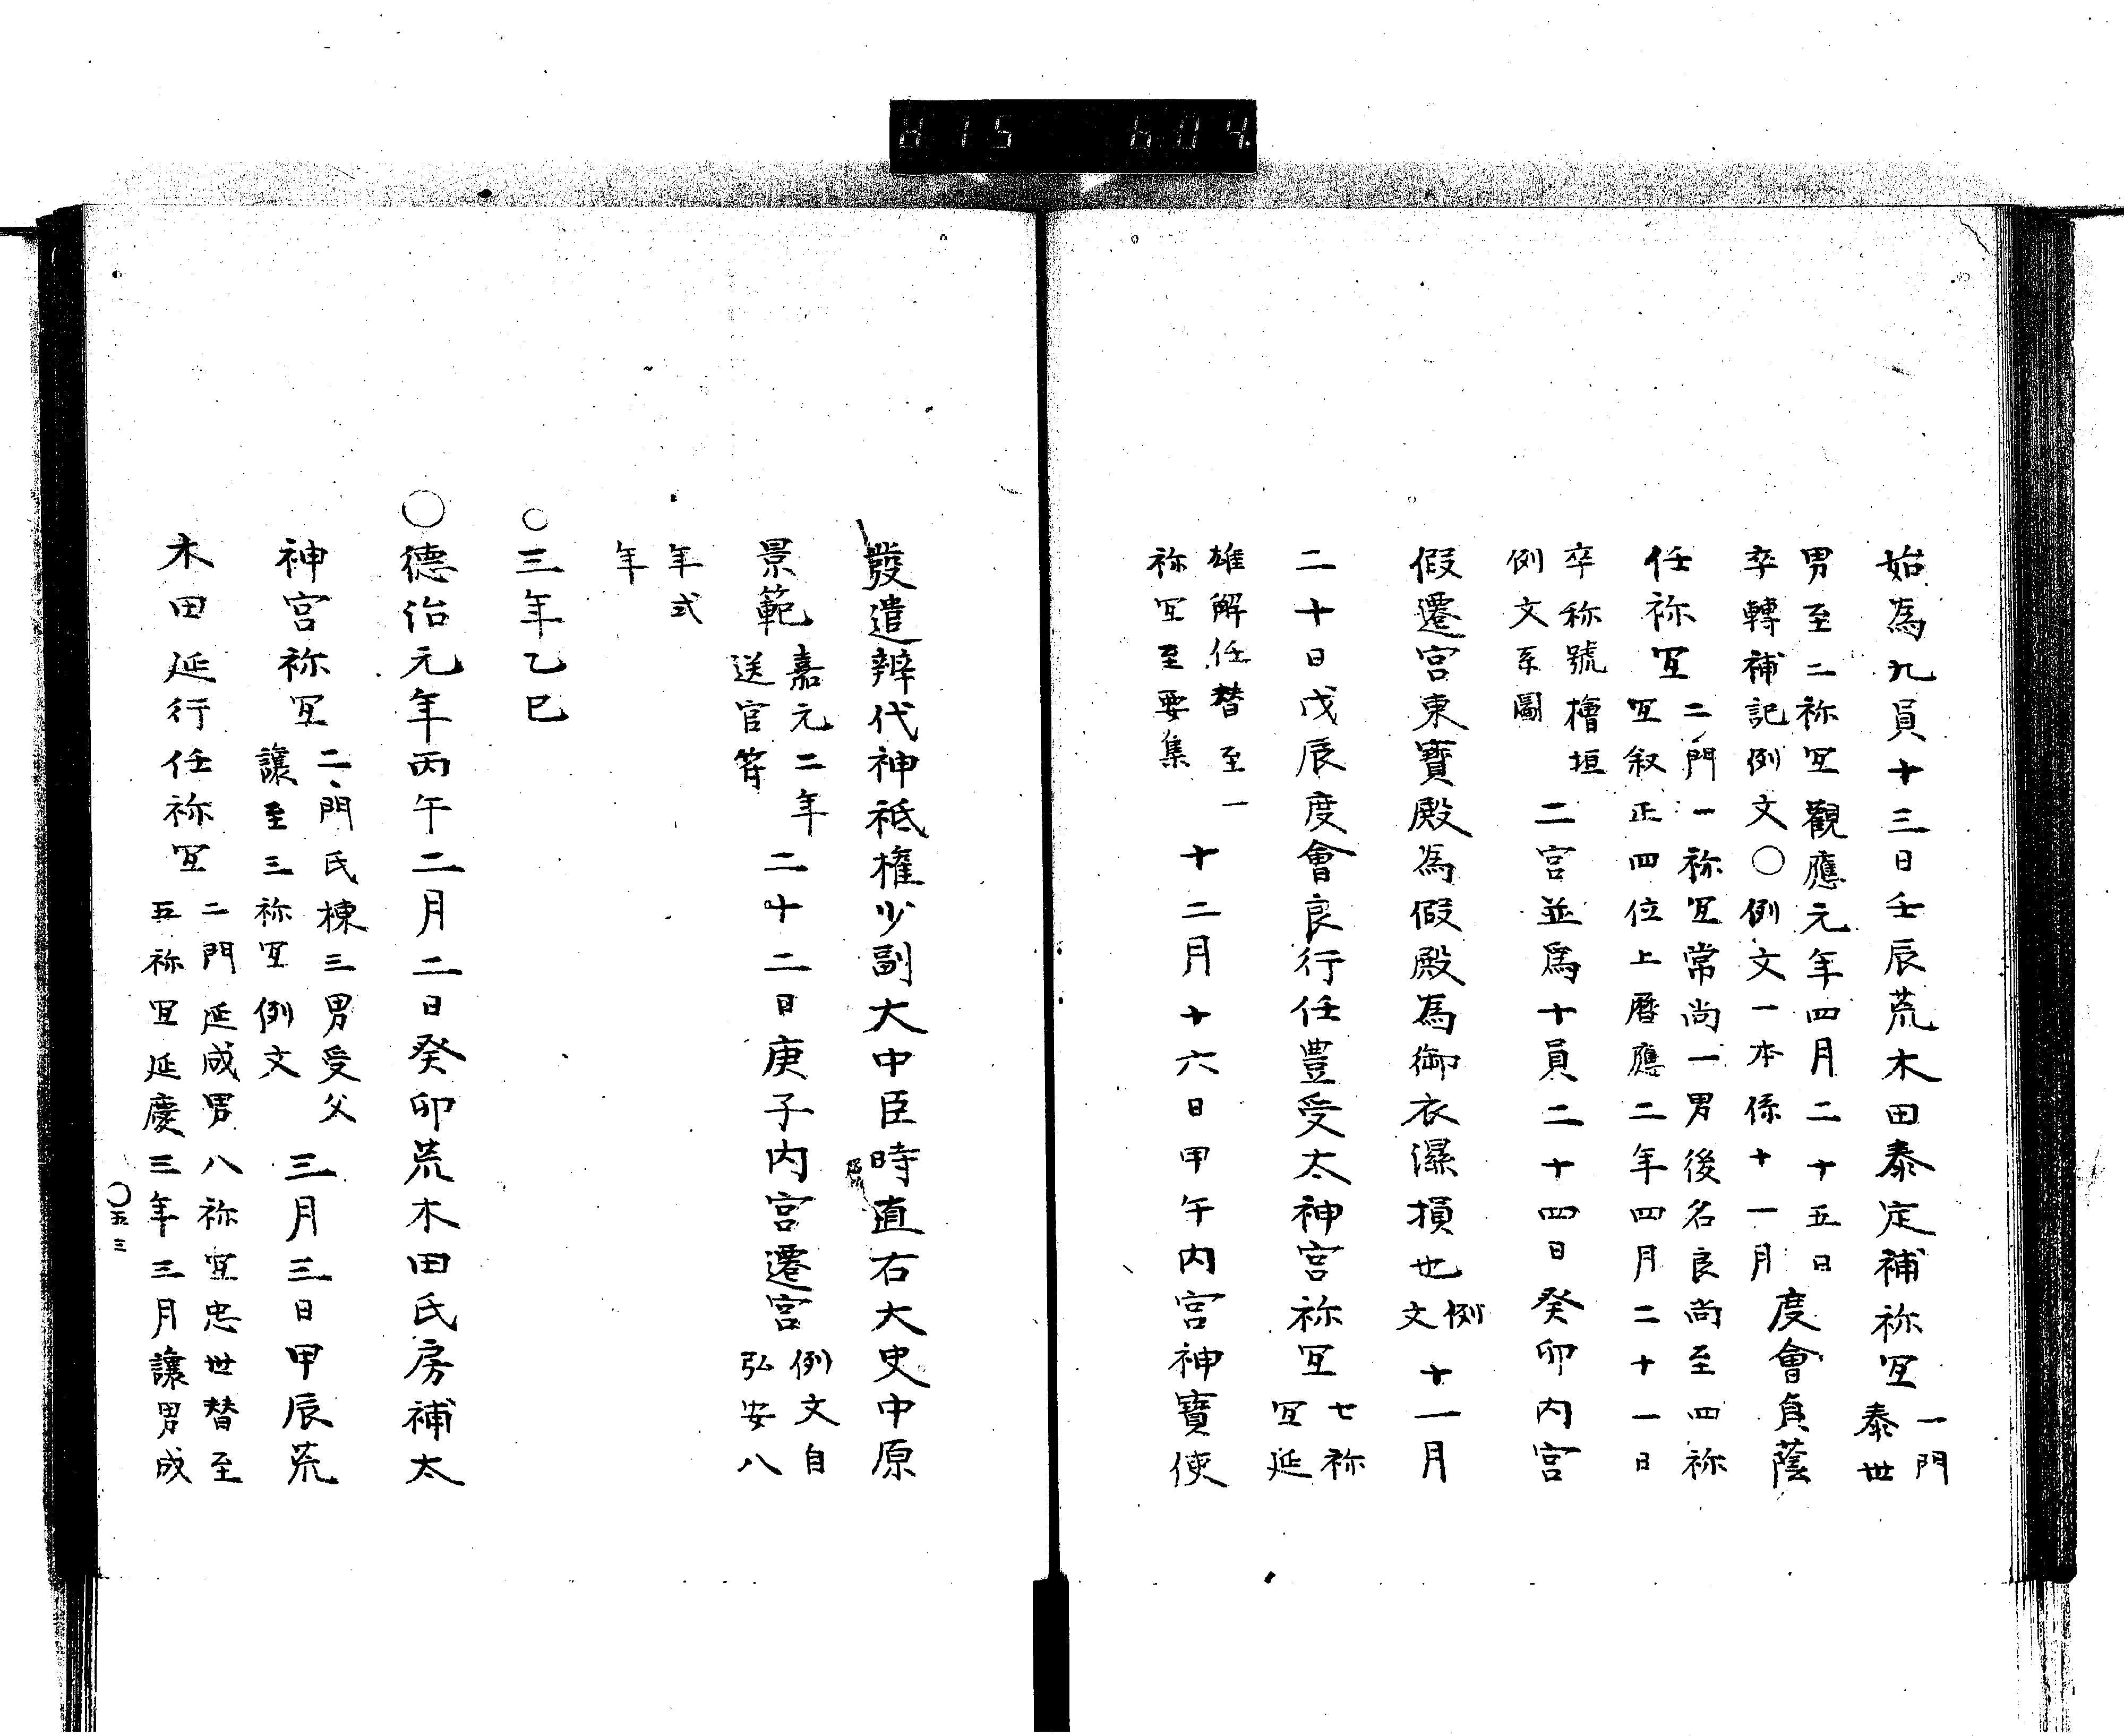 始為九員十三日壬辰荒木田泰定補祢宜一門
泰世
男至二祢宜觀應元年四月二十五日
卒轉補記例文○例文一本係十一月
度會貞蔭
任祢宜二門一祢宜常尚一男後名良尚至四祢
宜叙正四位上曆應二年四月二十一日
卒称號檜垣
例文系圖
二宮並為十員二十四日癸卯内宮
假遷宮東寶殿為假殿為御衣濕損也例
文
十一月
二十日戊辰度會良行任豊受太神宮祢宜七祢
宜延
雄解任替至一
祢宜至要集
十二月十六日甲午内宮神寶使
發遣辨代神祗權少副大中臣時直右大史中原
景範嘉元二年
送官符
二十二日庚子内宮遷宮例文自
弘安八
年式
年
○三年乙巳
○德治元年丙午二月二日癸卯荒木田氏房補太
神宮祢宜二門氏棟三男受父
讓至三祢宜例文
三月三日甲辰荒
木田延行任祢宜二門延成男八祢宜忠世替至
五祢宜延慶三年三月讓男成
○五三
815 604